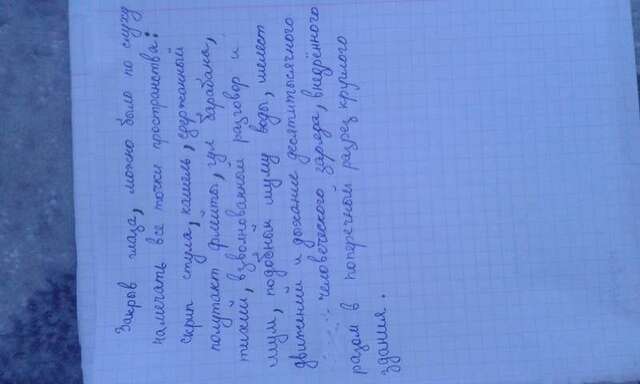 Закрыв глаза, можно было по слуху
намечать все точки пространства:
скрип стула, кашель, сдержанный
полутакт флейты, гул барабана,
тихий, взволнованный разговор и
шум, подобный шуму воды, шелест
движений и дыхание десятитысячного
человеческого заряда, внедрённого
разом в поперечный разрез круглого
здания.